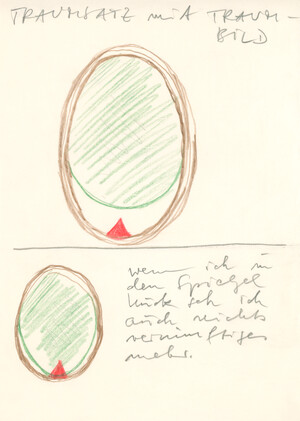 TRAUMSATZ mit TRAUM-
BILD
wenn ich in
den Spiegel
kuck seh ich
auch nichts
vernünftiges
mehr.